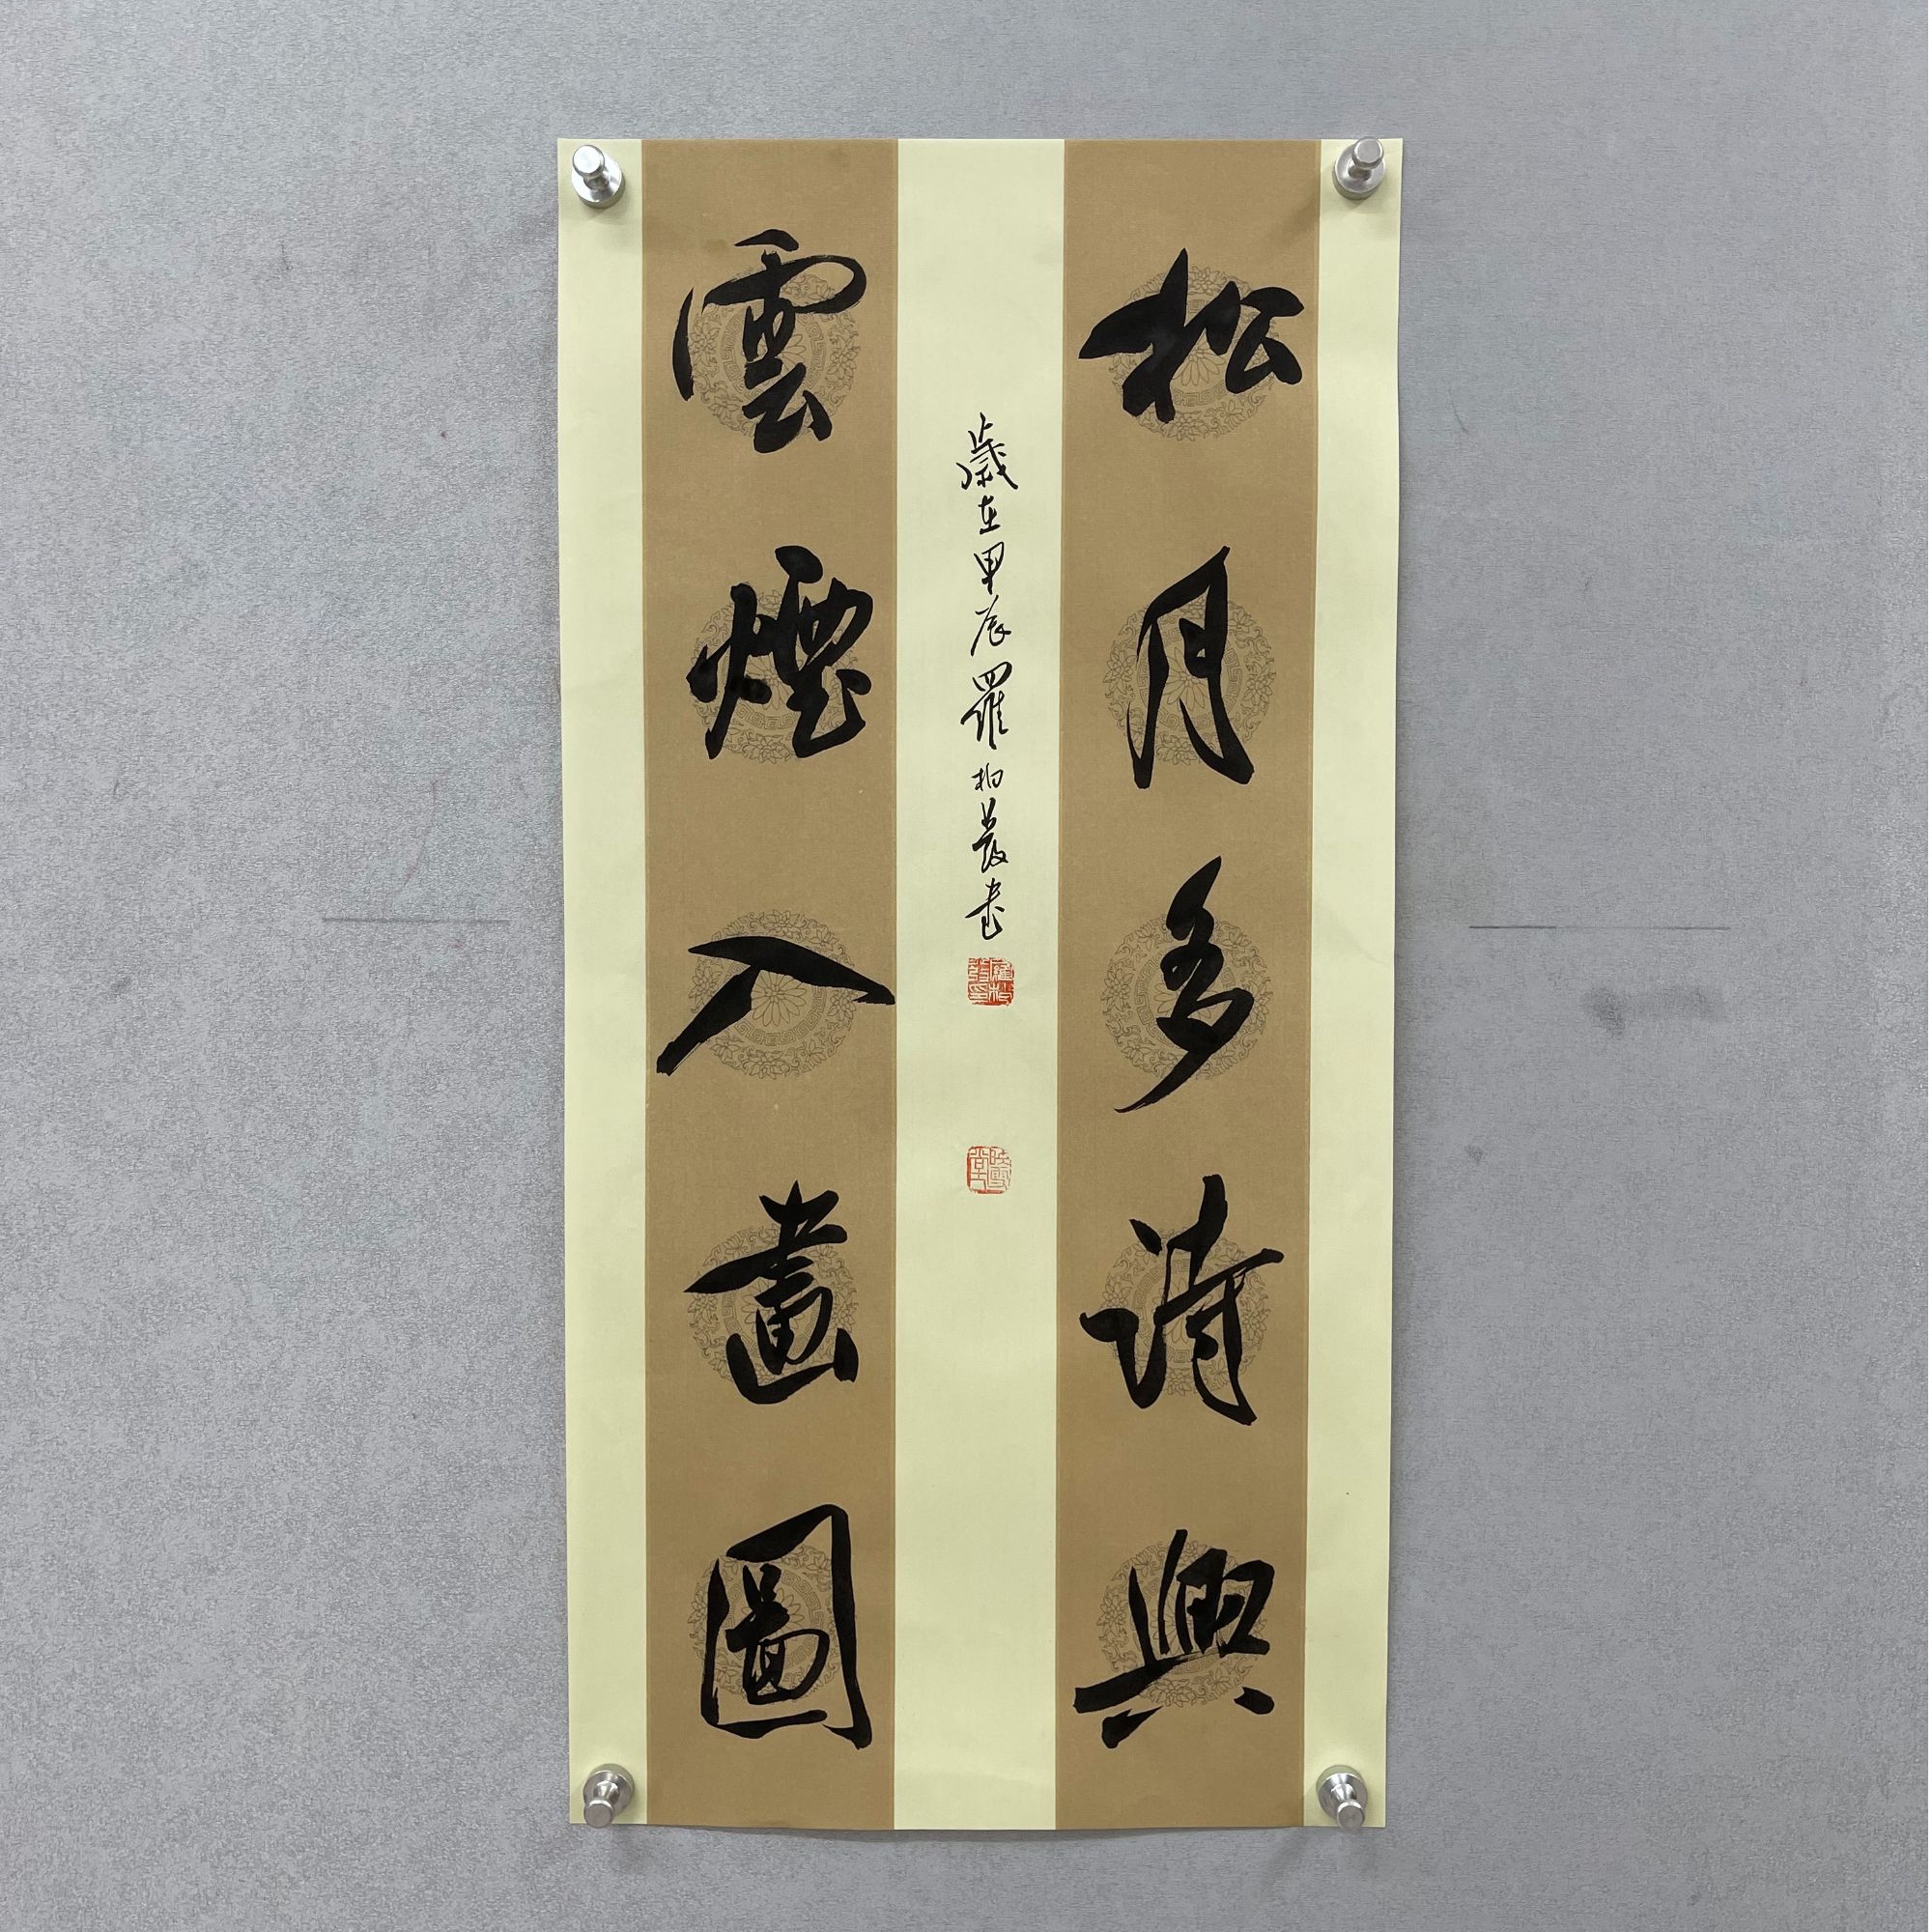 松月多詩興
歲在甲辰羅柏發書
雲煙入畫圖